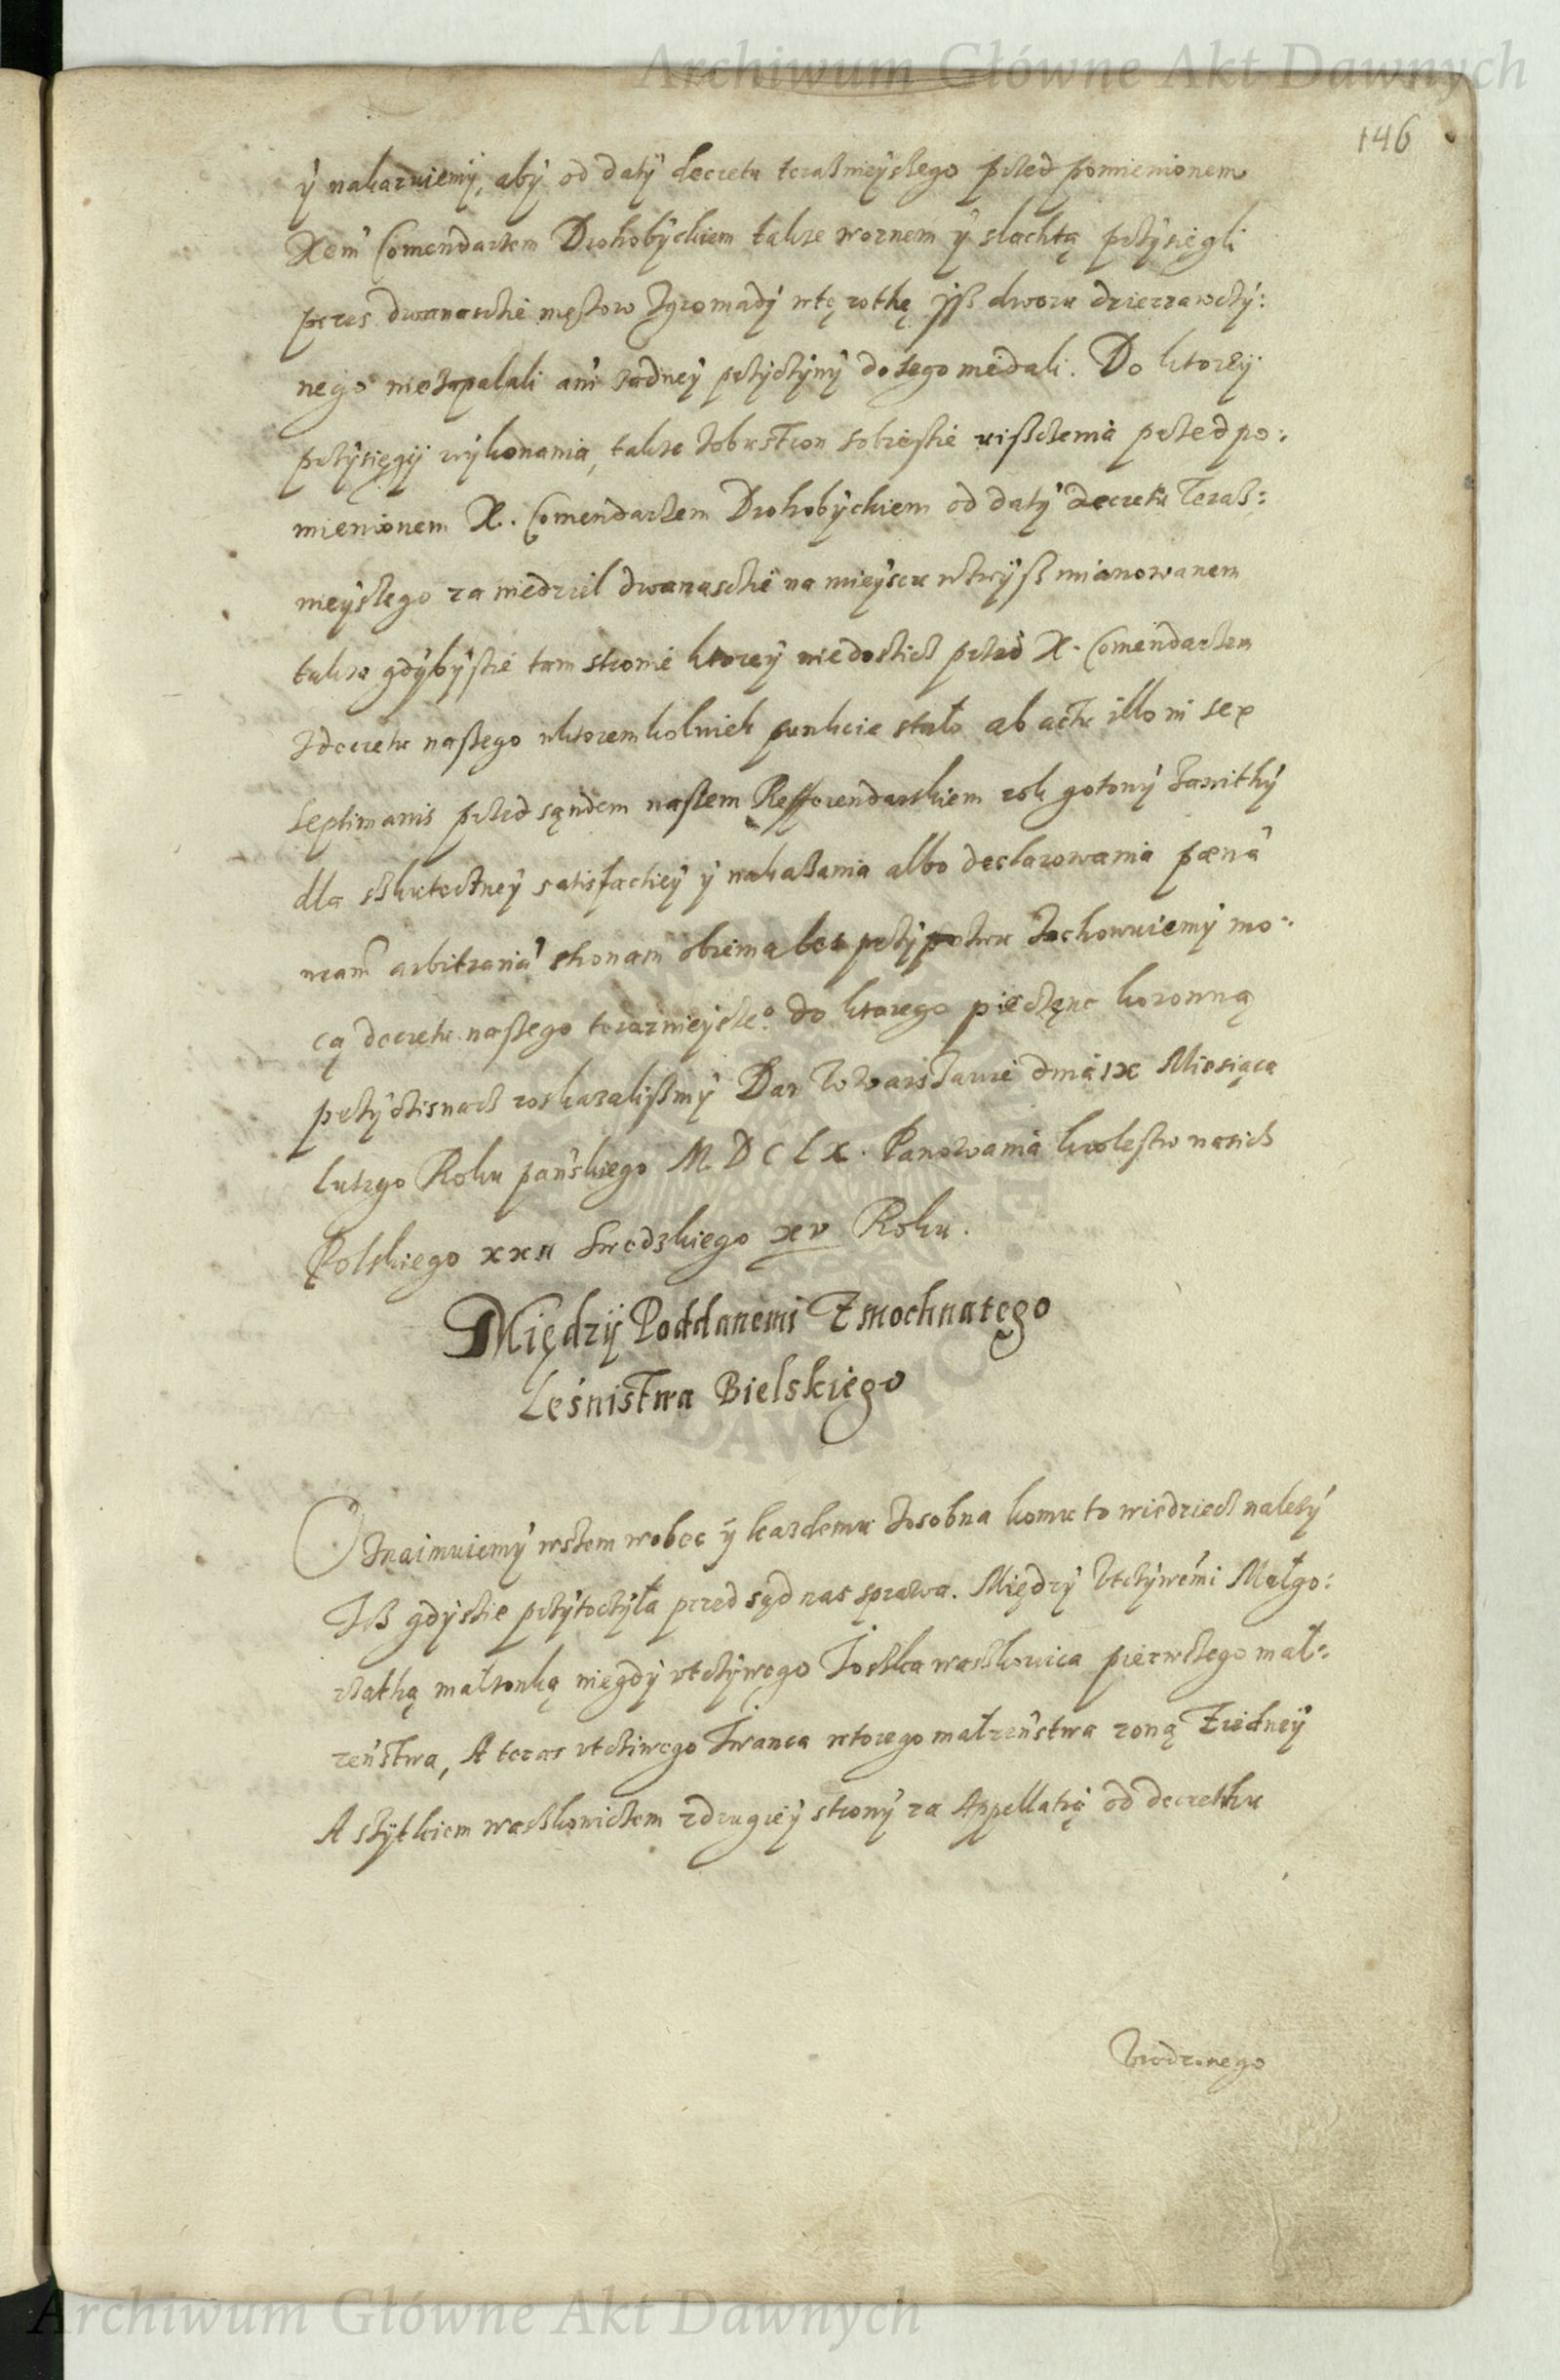 Archiwum Główne Akt Dawnych
146
ÿ nakazuiemÿ, abÿ od datÿ decretu teraßnieÿszego przed pomienionem
Xem Comendarzem Drohobÿckiem takze woznem ÿ slachtą przÿsięgli
przes dwanascie męzow zgromadÿ wtę rothę jß dworu dzierzawczÿ:
nego niezapalali ani zadneÿ przÿczÿnÿ do tego niedali. Do ktoreÿ
przÿsięgÿ wÿkonania, takze zobustron sobieskie uiszczenia przed po:
mienionem X. Comendarzem Drohobÿckiem od datÿ decretu Teraß:
nieÿszego za niedziel dwanascie na mieÿscu wzwÿß mianowanem
takze gdÿbÿ sie tam stronie ktoreÿ niedosticz przed X. Comendarzem
Zdecretu naszego wktoremkolwiek punkcie stało ab actu illo in sex
septimanis przed sąndem naszem Refferendarskiem rok gotowÿ Zawithÿ
dla skuteczneÿ satisfactieÿ ÿ nakazania albo declarowania pæna
arbitraria stronam obiema bez przÿpozwu Zachowuiemÿ mo:
cą decretu naszego terazniejsze° do ktorego pieczęnc koronną
przÿcisnacz roskazalismÿ Dan w Warszawie dnia ix Miesiąca
Lutego Roku panskiego M D C L X. Panowania krolestw nasich
Polskiego xxii Swedzkiego xv Roku.
Międzÿ Poddanemi Zmochnatego
Leśnistwa Bielskiego
Oznaimuiemÿ wszem wobec ÿ kazdemu Zosobna komu to wiedziecz nalezÿ
Jß gdÿ sie przÿtoczÿła przed sąd nas sprawa. Międzÿ Vtczÿwemi Małgo:
rzatką malzonką niegdÿ vtczÿwego Joszka waszkowica pierwszego mał:
zeństwa, A teraz vtcziwego Iwanca wtorego małzeństwa zoną Ziedneÿ
A szÿtkiem waszkowiczem zdrugieÿ stronÿ za Appellatią od decrethu
Vrodzonego
Archiwum Główne Akt Dawnych